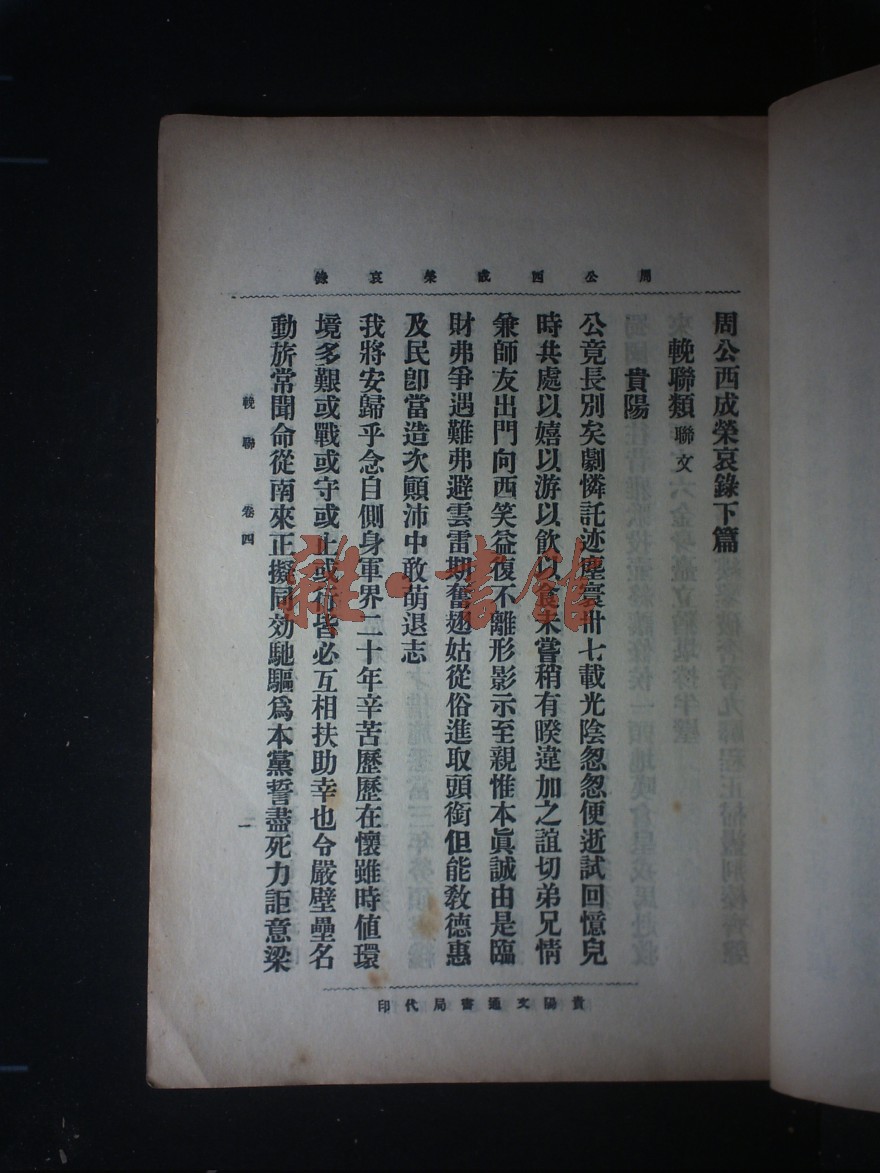 周公西成榮哀錄
周公西成榮哀錄下篇
輓聯類 聯文
貴陽
公竟長別矣劇憐託迹塵寰卅七載光陰忽忽便逝試回憶兒
時共處以嬉以游以飲以食未嘗稍有暌違加之誼切弟兄情
兼師友出門向西笑益復不離形影示至親惟本眞誠由是臨
財弗爭遇難弗避雲雷期奮翅姑從俗進取頭銜但能教德惠
及民卽當造次顚沛中敢萌退志
我將安歸乎念自側身軍界二十年辛苦歷歷在懷雖時値環
境多艱或戰或守或止或行皆必互相扶助幸也令嚴壁壘名
動旂常聞命從南來正擬同効馳驅爲本黨誓盡死力詎意梁
輓聯 卷四
一
貴陽文通書局代印
雜·書館